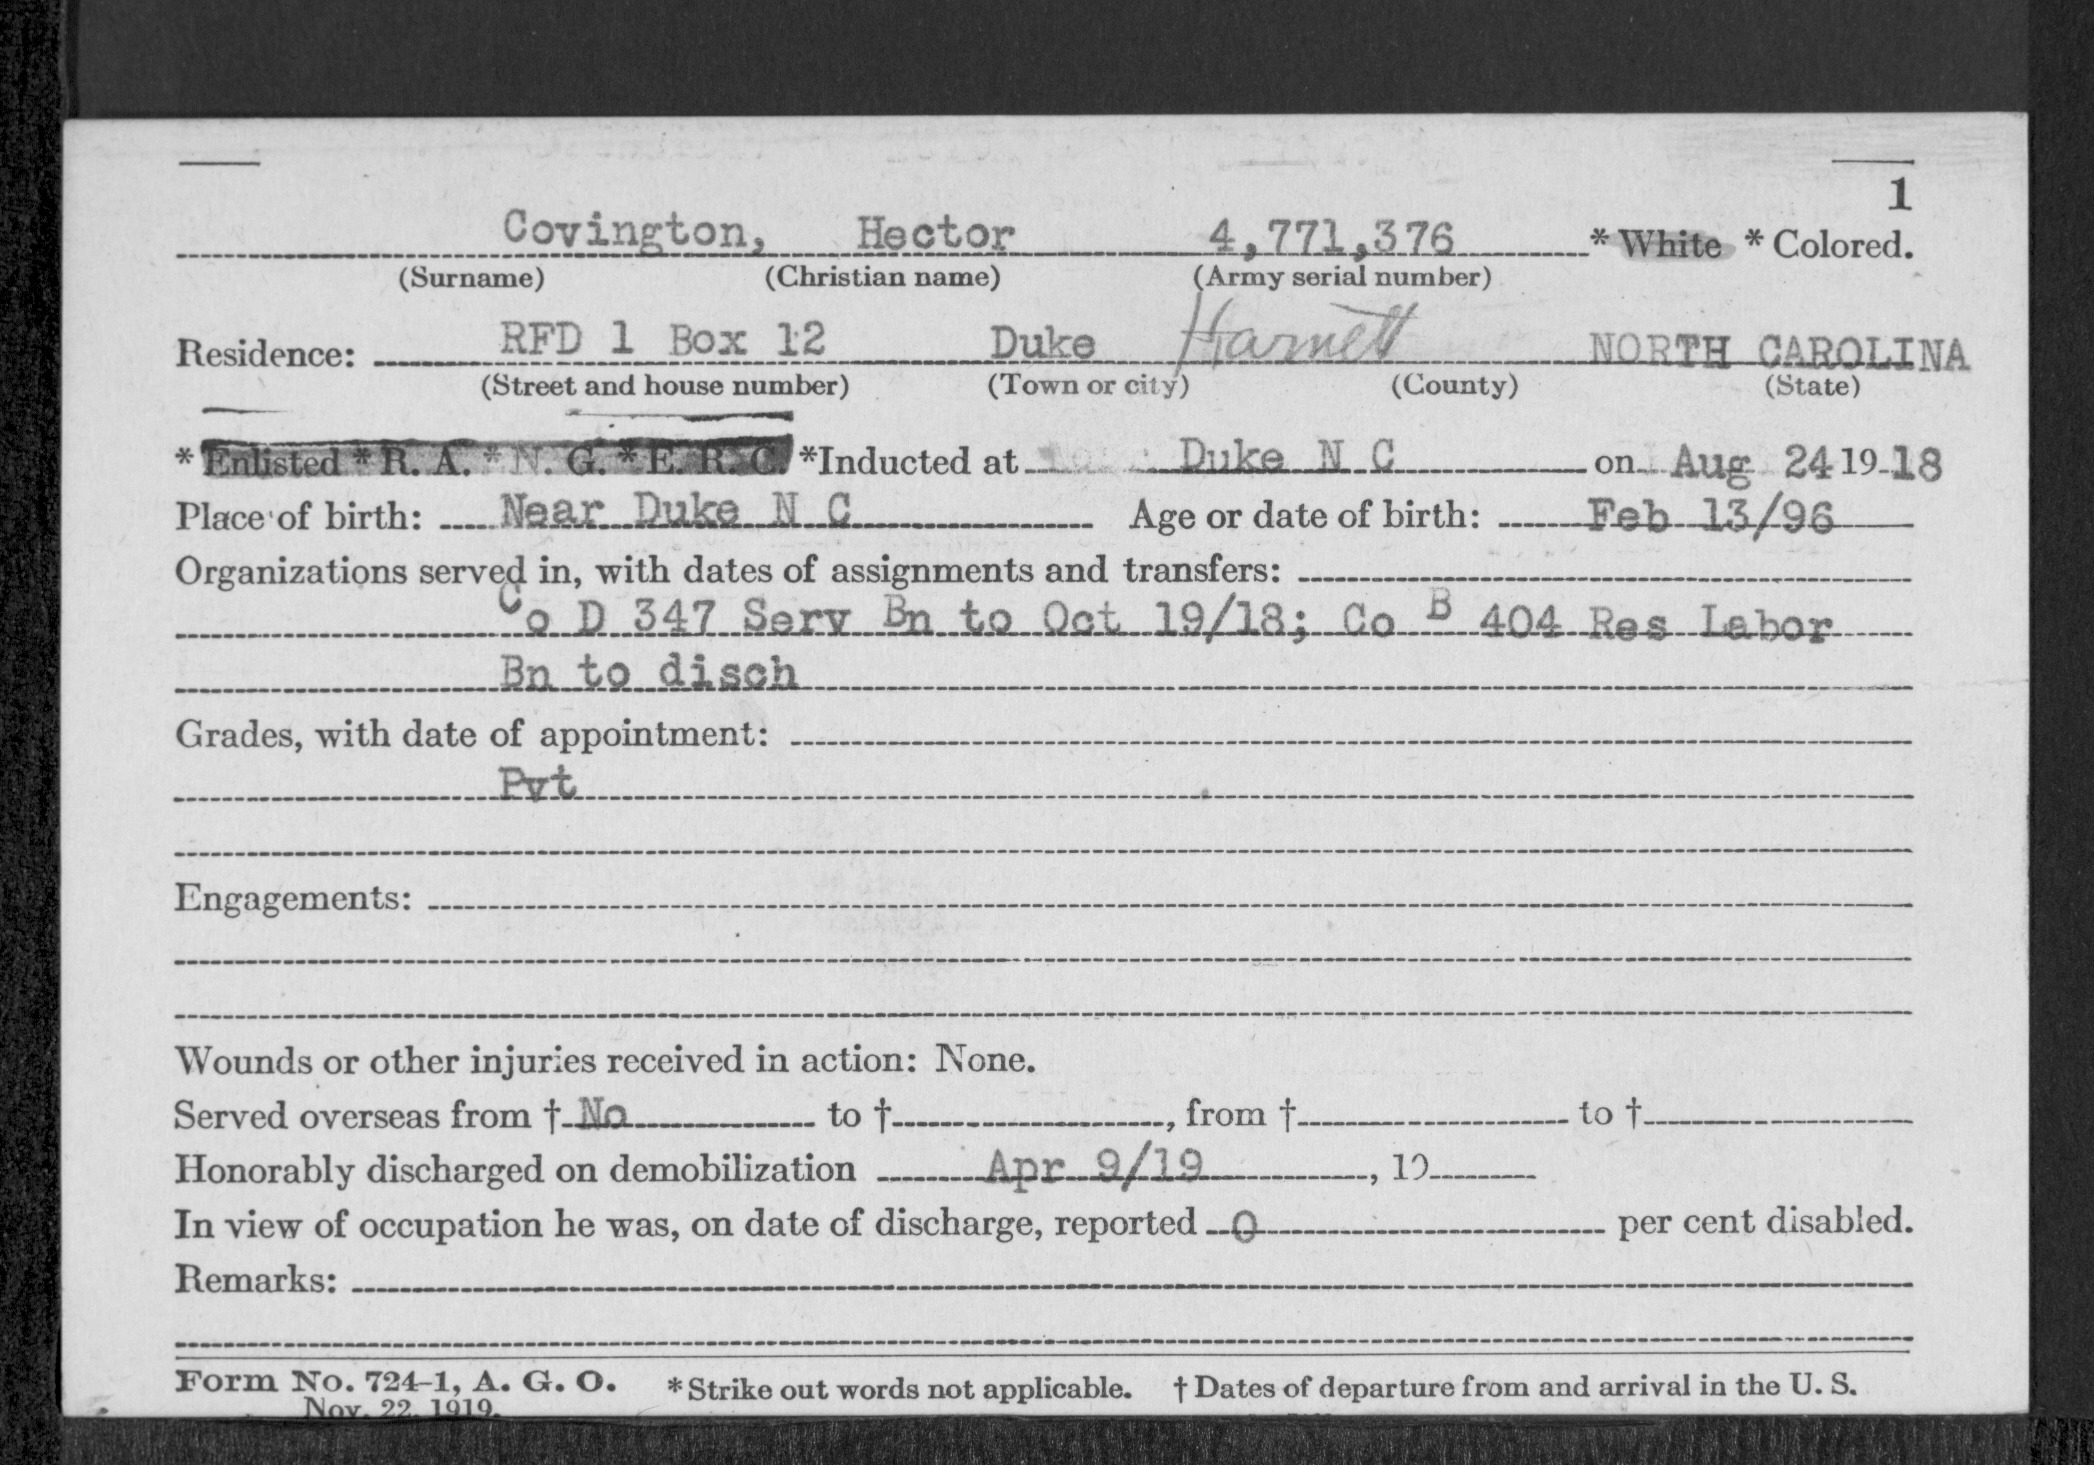 1
Covington, Hector 4,771,376 * White * Colored.
(Surname) (Christian name) (Army serial number)
Residence: RFD 1 Box 12 Duke Harnett NORTH CAROLINA
(Street and house number) (Town or city) (County) (State)
* Enlisted * R. A. * N. G. * E. R. C. *Inducted at Duke N C on Aug 24 19 18
Place of birth: Near Duke N C Age or date of birth: Feb 13/96
Organizations served in, with dates of assignments and transfers:
Co D 347 Serv Bn to Oct 19/18; Co B 404 Res Labor
Bn to disch
Grades, with date of appointment:
Pvt
Engagements:
Wounds or other injuries received in action: None.
Served overseas from † No to † , from † to †
Honorably discharged on demobilization Apr 9/19 , 19
In view of occupation he was, on date of discharge, reported 0 per cent disabled.
Remarks:
Form No. 724-1, A. G. O. * Strike out words not applicable. † Dates of departure from and arrival in the U. S.
Nov. 22, 1919.